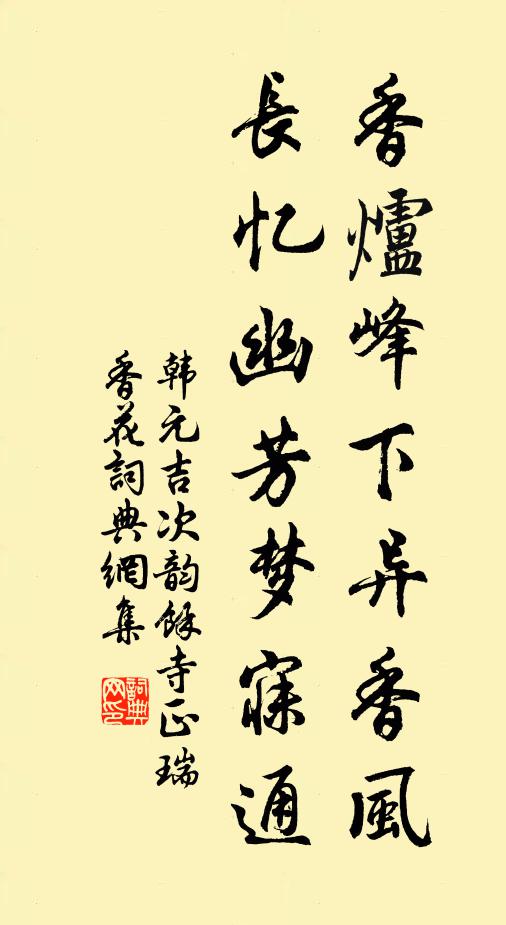 香爐峰下异香風
長忆幽芳梦寐通
韩元吉次韵餘寺正瑞
香花詞典網集
詞典
网印